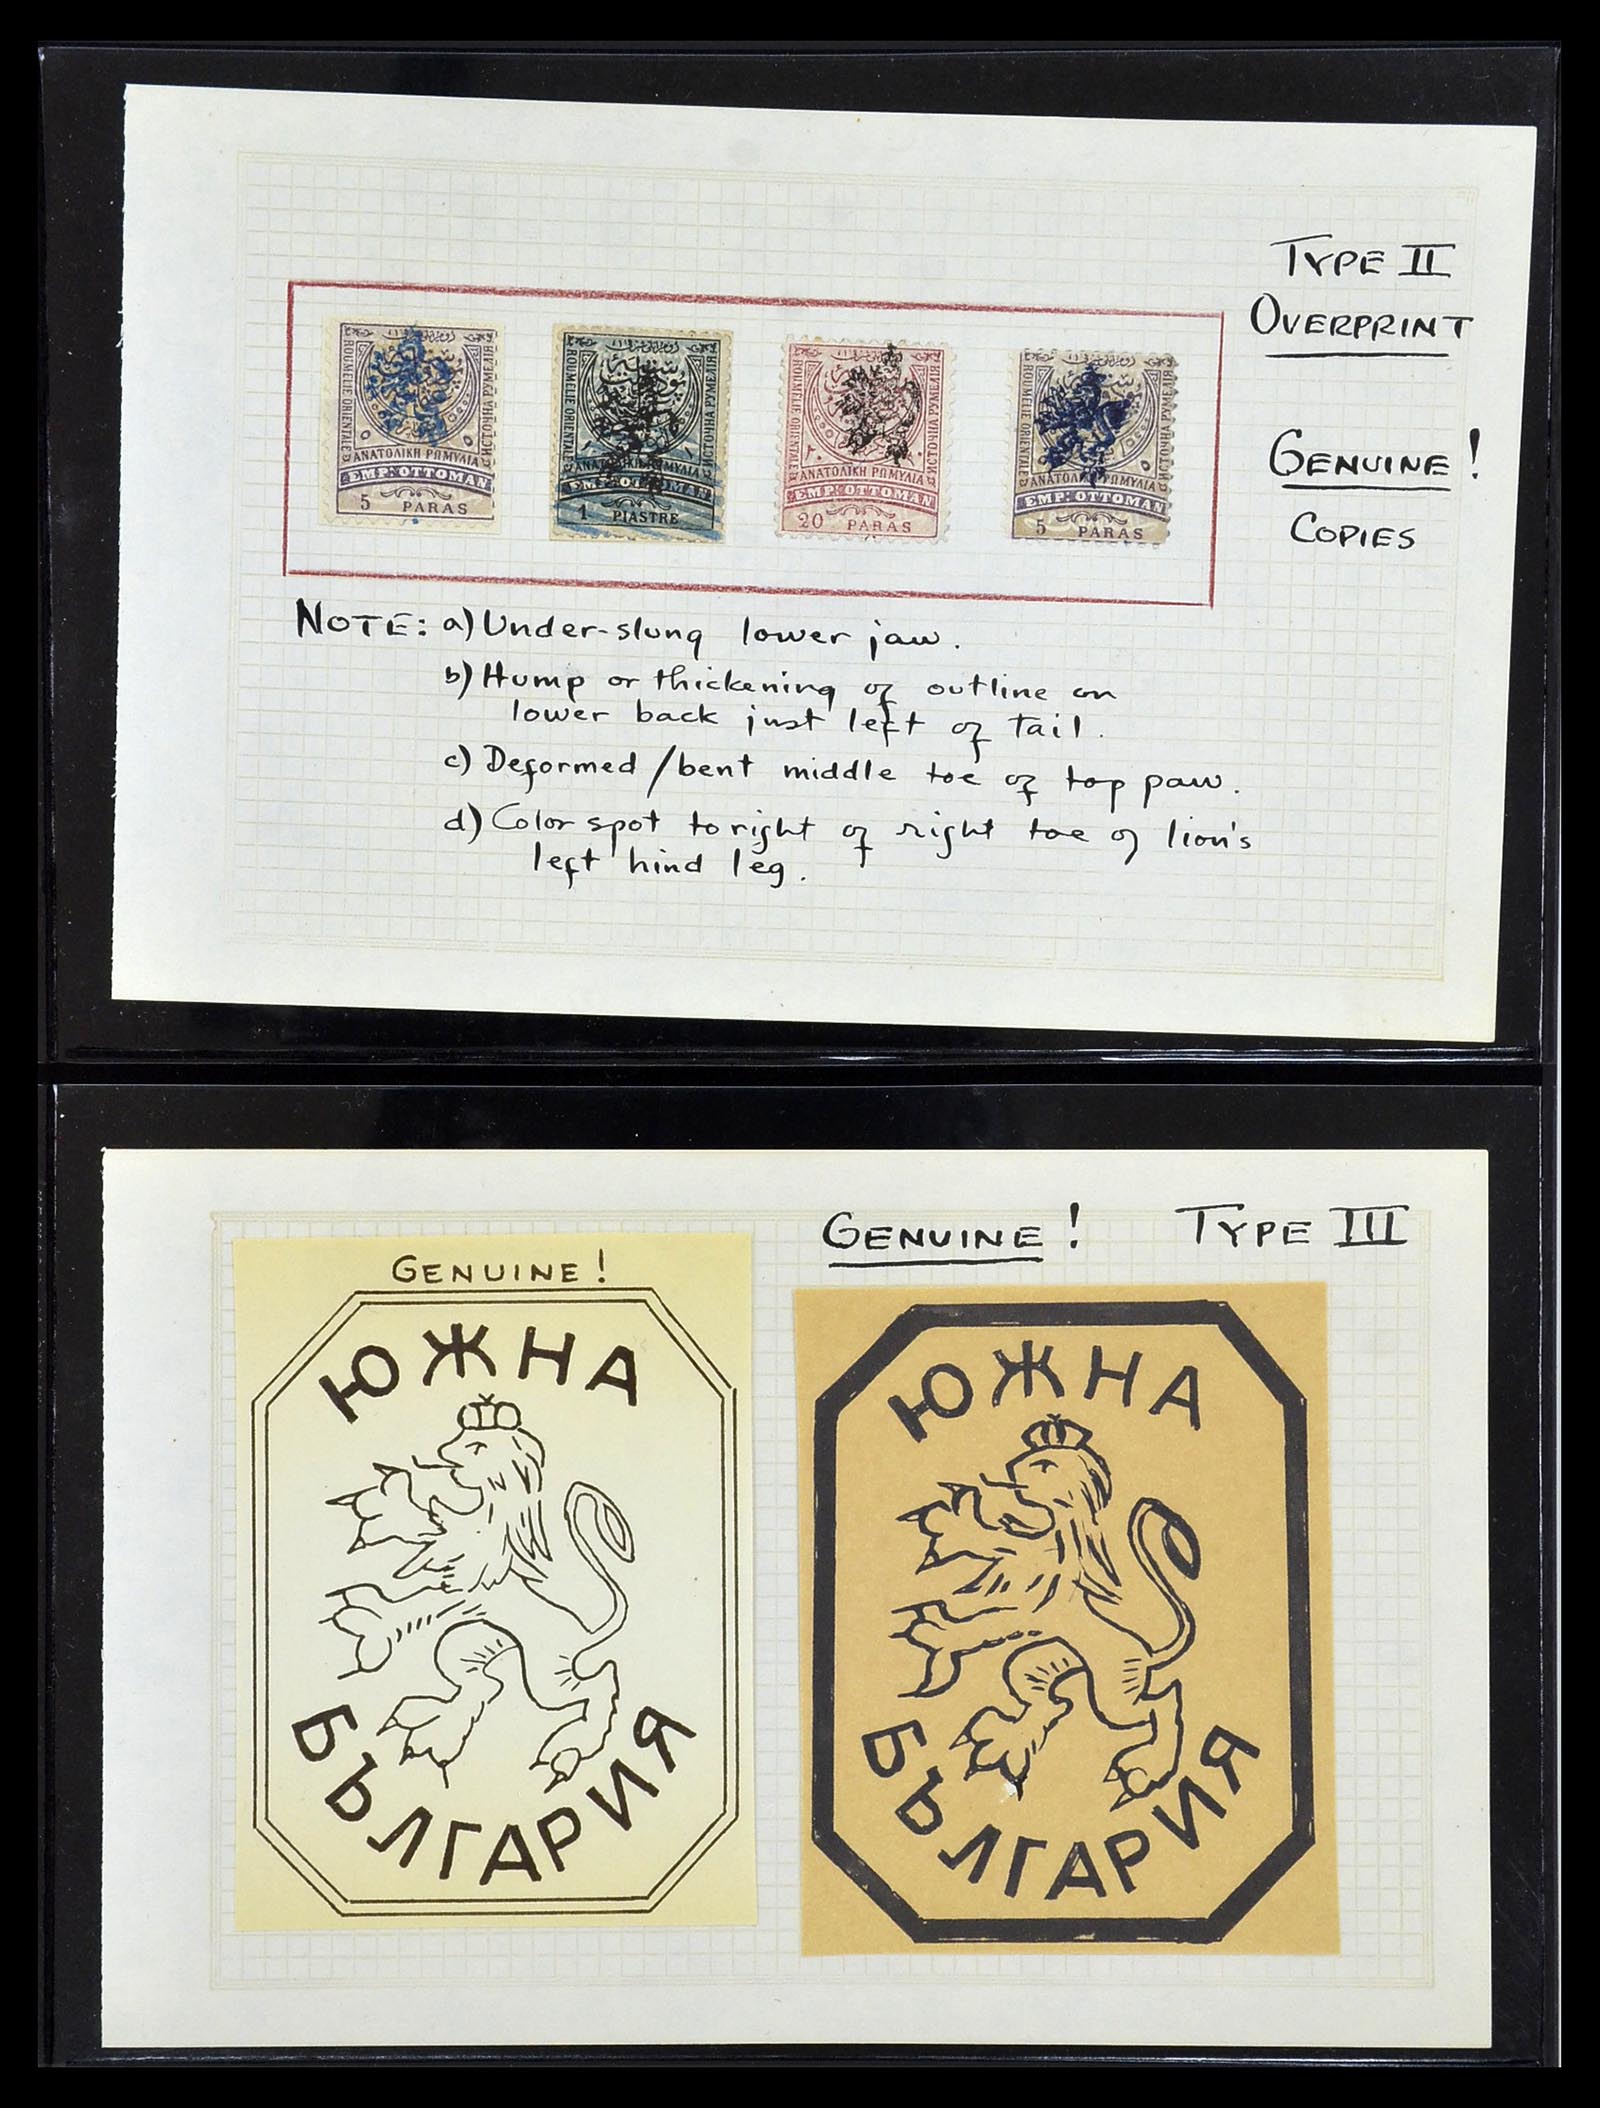 TYPE II
OVERPRINT
GENUINE!
COPIES
ROUMELIE ORIENTALE
ИСТОЧНА РУМЕЛІЯ
ΑΝΑΤΟΛΙΚΗ ΡΩΜΥΛΙΑ
EMP: OTTOMAN
5 PARAS
ROUMELIE ORIENTALE
ИСТОЧНА РУМЕЛІЯ
ΑΝΑΤΟΛΙΚΗ ΡΩΜΥΛΙΑ
EMP: OTTOMAN
1 PIASTRE
ROUMELIE ORIENTALE
ИСТОЧНА РУМЕЛІЯ
ΑΝΑΤΟΛΙΚΗ ΡΩΜΥΛΙΑ
EMP: OTTOMAN
20 PARAS
ROUMELIE ORIENTALE
ИСТОЧНА РУМЕЛІЯ
ΑΝΑΤΟΛΙΚΗ ΡΩΜΥΛΙΑ
EMP: OTTOMAN
5 PARAS
NOTE: a) Under-slung lower jaw.
b) Hump or thickening of outline on
lower back just left of tail.
c) Deformed / bent middle toe of top paw.
d) Color spot to right of right toe of lion's
left hind leg.
GENUINE! TYPE III
GENUINE!
ЮЖНА
БЪЛГАРИЯ
ЮЖНА
БЪЛГАРИЯ